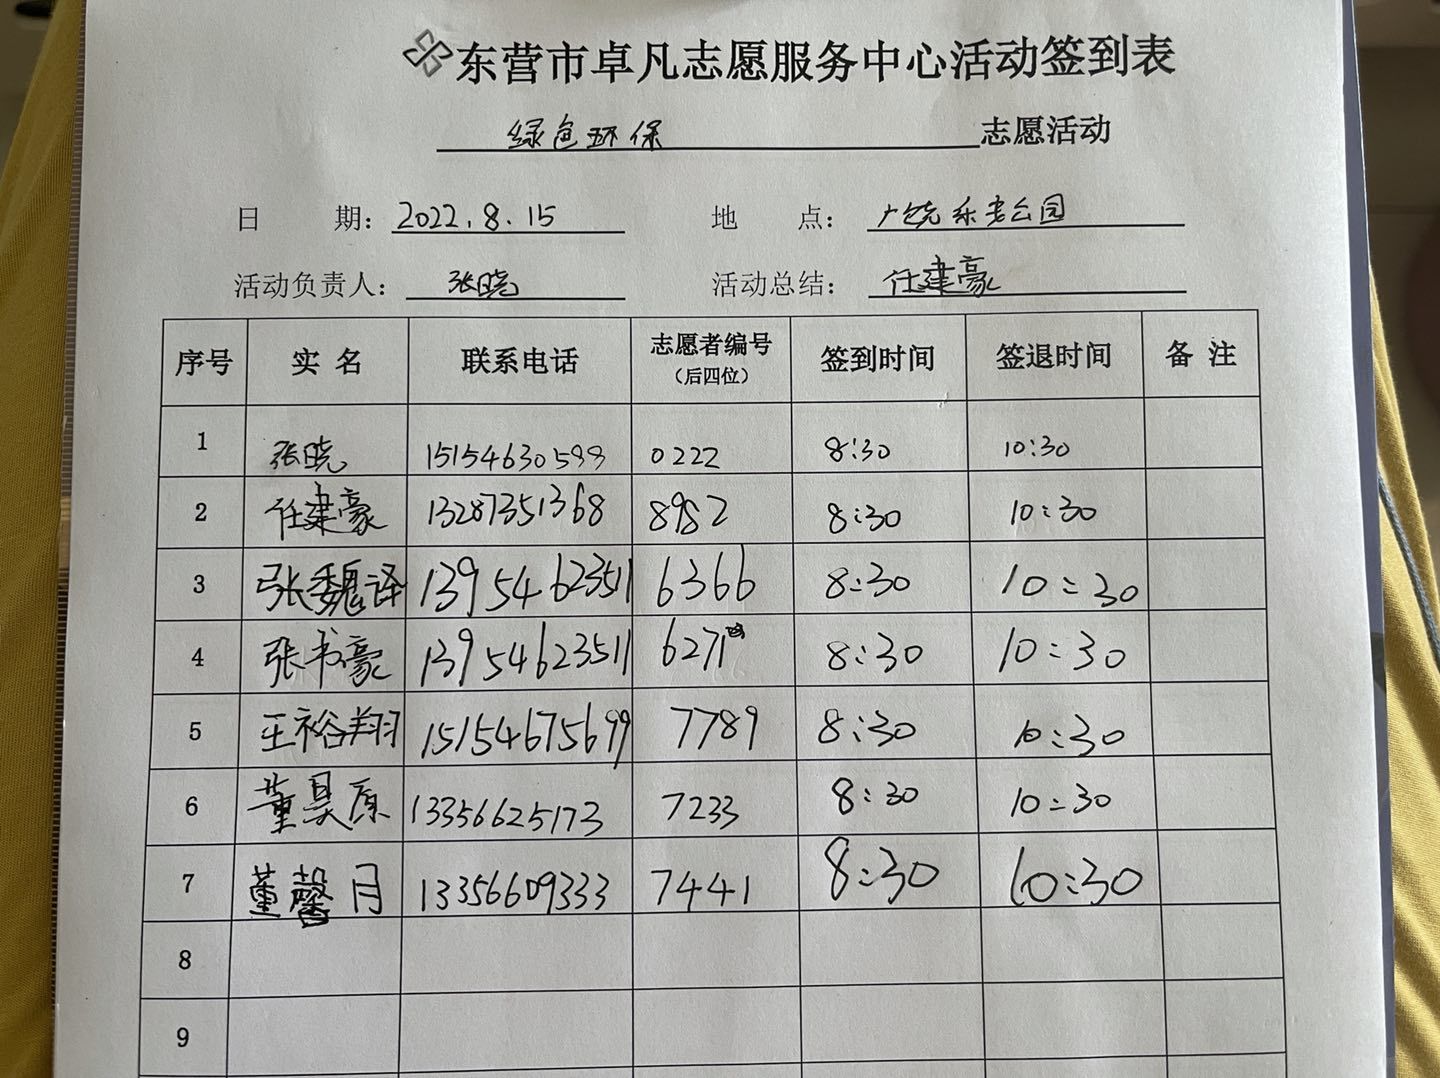 东营市卓凡志愿服务中心活动签到表
绿色环保志愿活动
日 期：2022.8.15 地 点：广饶乐安公园
活动负责人：张晓 活动总结：任建豪
序号 实名 联系电话 志愿者编号（后四位） 签到时间 签退时间 备注
1 张晓 15154630599 0222 8:30 10:30
2 任建豪 13287351368 8982 8:30 10:30
3 张魏译 13954623511 6366 8:30 10:30
4 张书豪 13954623511 6271 8:30 10:30
5 王裕翔 15154675699 7789 8:30 10:30
6 董昊原 13356625173 7233 8:30 10:30
7 董馨月 13356609333 7441 8:30 10:30
8
9